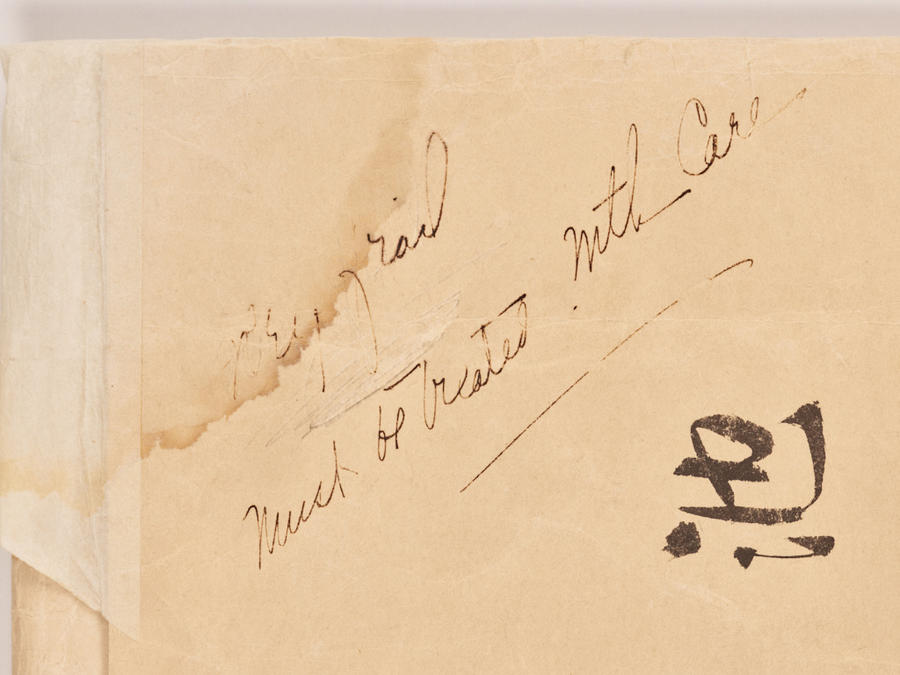 Very Frail
Must be Treated With Care
池